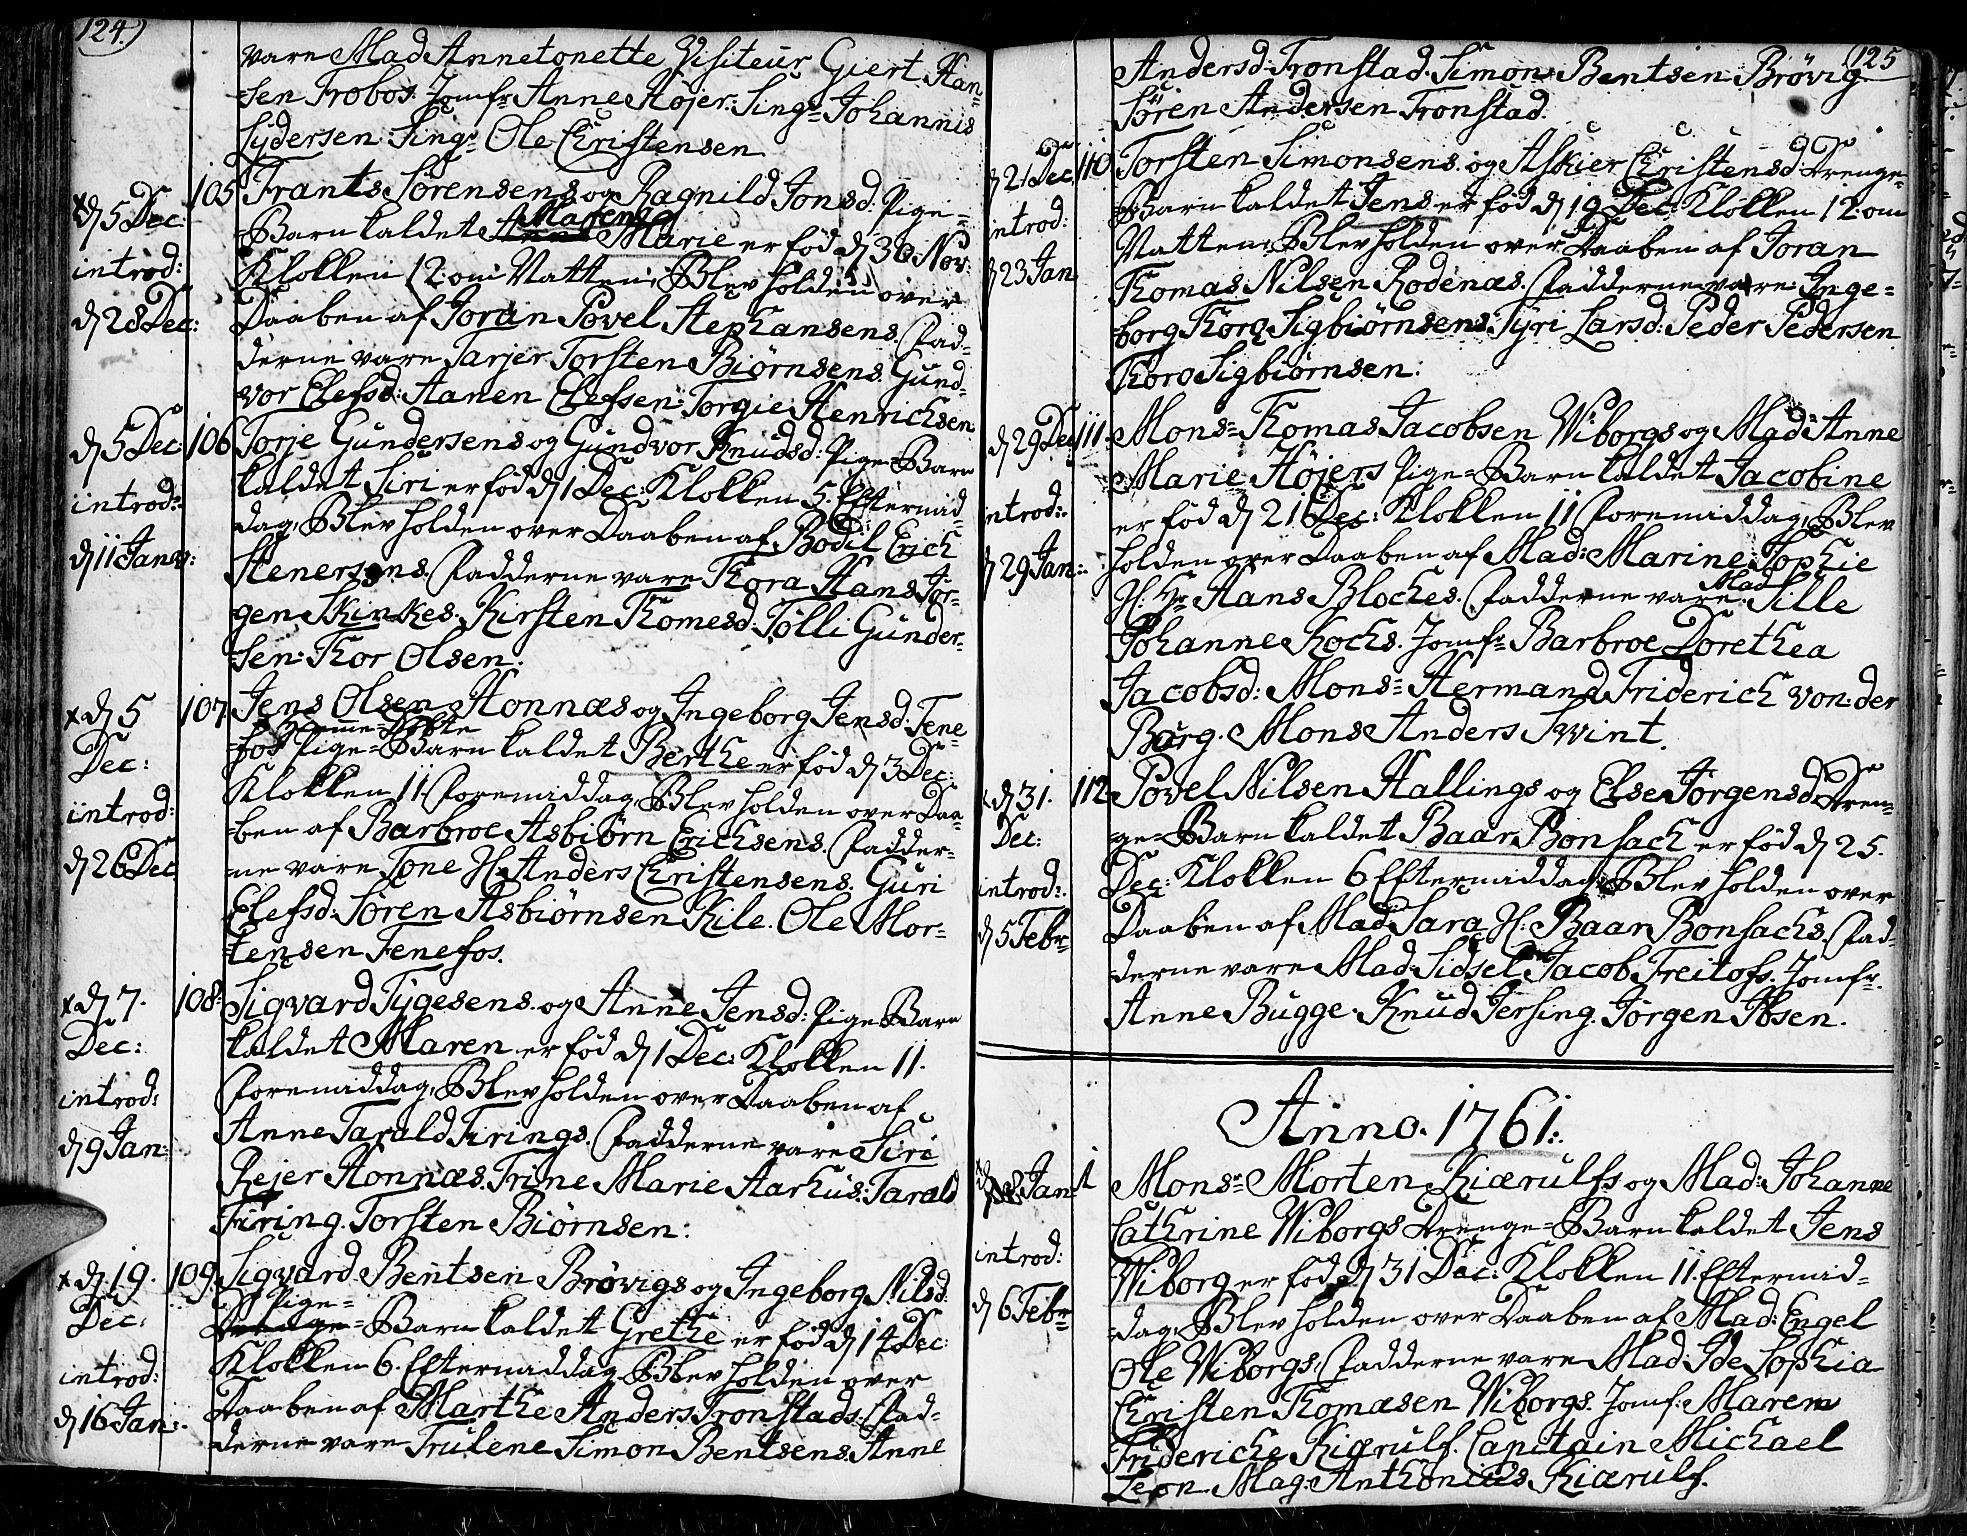 124.
vare Mad Annetonette Visiteur Giert Han=
=sen Trobos. Jomfr Anne Høyer: Singr= Johannis
Sydersen: Singr Ole Christensen
x d 5 Dec:
introd:
d 28 Dec:
105 Frants Sørensens og Ragnild Jonsd: Pige=
Marence
=Barn kaldet Anne Marie er fød d 30 Nov:
Klokken 12 om Natten, Blev holden over
Daaben af Joran Povel Stephansens. Fad=
derne vare Tarjer Torsten Biørnsens. Gund=
vor Elefsd: Aanen Elefsen: Torgie Henrichsen
d 5 Dec
introd:
d 11 Janr:
106 Torje Gundersens og Gundvor Knudsd: Pige=Barn
kaldet Siri er fød d 1 Dec: Klokken 5. Eftermid=
dag, Blev holden over Daaben af Bodil Erich
Stenersens. Fadderne vare Thora Hans Jør=
gen Skinkes. Kirsten Thomesd. Tolli Gunder=
sen: Thor Olsen:
x d 5
Dec:
introd:
d 26 Dec
107 Jens Olsen Honnæs og Ingeborg Jensd: Tene=
hiemme=Døbte
fos Pige=Barn kaldet Berthe er fød d 3 Dec:
Klokken 11 Foremiddag, Blev holden over Daa=
=ben af Barbroe Asbiørn Erichsens. Fadder=
=ne vare Tone H. Anders Christensens. Guri
Elefsd: Søren Asbiørnsen Kile. Ole Mor=
tensen Tenefos.
x d 7.
Dec:
introd:
d 9 Jan:
108 Sigvard Tygesens og Anne Jensd: Pige=Barn
kaldet Maren er fød d 1 Dec: Klokken 11.
Foremiddag, Blev holden over Daaben af
Anne Tarald Firings. Fadderne vare Siri
Rejer Honnæs. Trine Marie Aarhus: Tarald
Firing. Torsten Biørnsen:
x d 19.
Dec:
introd:
d 16 Jan:
109 Sigvard Bentsen Brøvigs og Ingeborg Nilsd.
Pige=
Drenge=Barn kaldet Grethe er fød d 14 Dec:
Klokken 6. Eftermiddag, Blev holden over
Daaben af Marthe Anders Tronstads. Fad=
derne vare Trulene Simon Bentsens. Anne
125
Andersd: Tronstad. Simon Bentsen Brøvig
Søren Andersen Tronstad.
d 21 Dec
introd:
d 23 Jan
110 Torsten Simonsens og Askier Christensd: Drenge=
=Barn kaldet Jens er fød d 19 Dec: Klokken 12 om
Natten, Blev holden over Daaben af Joran
Thomas Nilsen Rodenæs. Fadderne vare: Inge=
borg Thoro Sigbiørnsens: Syri Larsd: Peder Pedersen
Thoro Sigbiørnsen:
d 29 Dec
introd:
d 29 Jan:
111. Monsr= Thomas Jacobsen Wiborgs og Mad: Anne
Marie Høyers Pige=Barn kaldet Jacobine
er fød d 21 Dec: Klokken 11 Foremiddag, Blev
holden over Daaben af Mad: Marine Sophie
H. Hr Hans Bloches. Fadderne vare Mad Sille
Johanne Kochs. Jomfr Barbroe Dorethea
Jacobsd: Monsr= Hermand Friderich von der
Burg. Mons Anders Swint.
x d 31.
Dec:
introd:
d 5 Febr
112 Povel Nilsen Hallings og Else Jørgensd: Dren=
ge=Barn kaldet Baar Bonsach er fød d 25.
Dec: Klokken 6 Eftermiddag, Blev holden over
Daaben af Mad Sara H: Baar Bonsachs. Fad=
derne vare Mad Sidsel Jacob Freitofs. Jomfr.
Anne Bugge. Knud Jersing. Jørgen Ibsen.
Anno. 1761:
Jan: 1
introd:
d 6 Febr
Monsr= Morten Kiærulfs og Mad: Johanne
Cathrine Wiborgs Drenge=Barn kaldet Jens
Wiborg er fød d 31 Dec: Klokken 11. Eftermid=
=dag, Blev holden over Daaben af Mad: Engel
Ole Wiborgs. Fadderne vare Mad: Ide Sophia
Christen Thomæsen Wiborgs. Jomf: Maren
Frideriche Kiærulf. Capitain Michael
Leon. Mag: Anthonius Kiærulf.